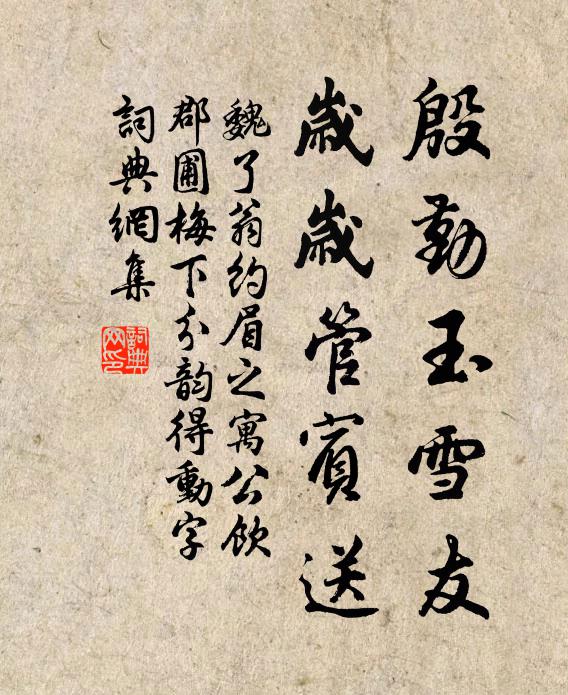 殷勤玉雪友
歲歲管賓送
魏了翁約眉之寓公飲
郡圃梅下分韵得動字
詞典網集
詞典网印